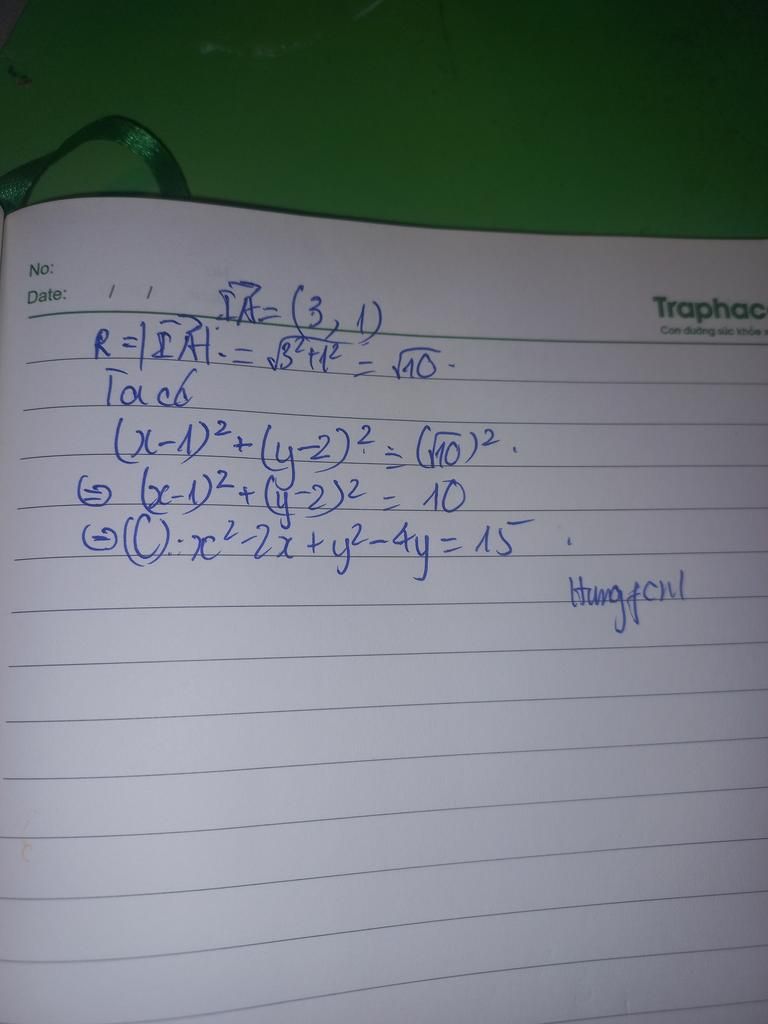 No:
Date: / /
Traphac
Con đường sức khỏe x
IA→ = (3, 1)
R = |IA→| = √3²+1² = √10.
Ta có
(x-1)² + (y-2)² = (√10)².
⇔ (x-1)² + (y-2)² = 10
⇔ (C): x² - 2x + y² - 4y = 15.